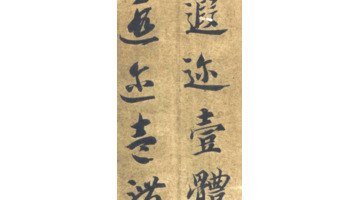 遐迩壹體
遐迩壹體